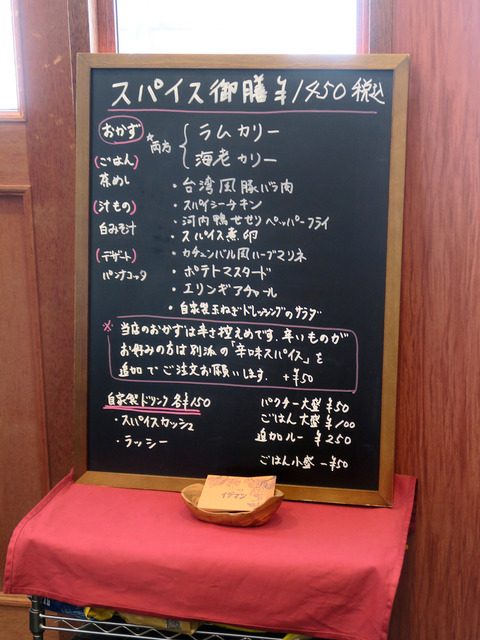 スパイス御膳 ¥1450 税込
おかず
★両方
ラムカリー
海老カリー
(ごはん)
茶めし
(汁もの)
白みそ汁
(デザート)
パンナコッタ
・台湾風豚バラ肉
・スパイシーチキン
・河内鴨せせりペッパーフライ
・スパイス煮卵
・カチュンバル風ハーブマリネ
・ポテトマスタード
・エリンギアチャール
・自家製玉ねぎドレッシングのサラダ
※当店のおかずは辛さ控えめです。辛いものが
お好みの方は別添の「辛味スパイス」を
追加でご注文お願いします。 +¥50
自家製ドリンク 各¥150
・スパイスカッシュ
・ラッシー
パクチー大盛 ¥50
ごはん大盛 ¥100
追加ルー ¥250
ごはん小盛 -¥50